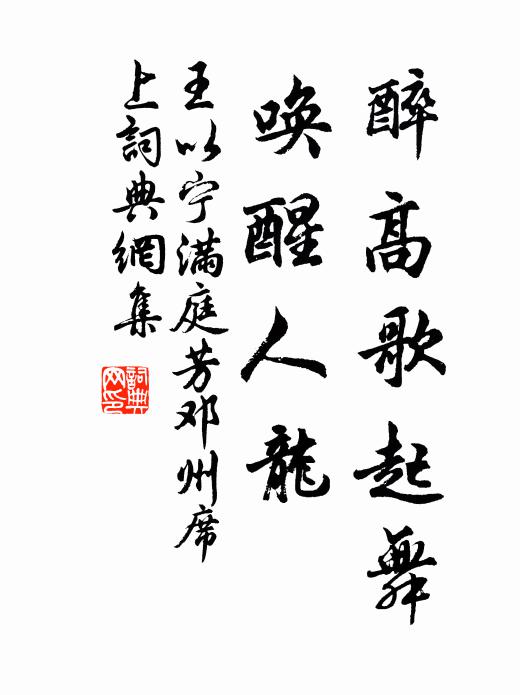 醉高歌起舞
唤醒人龍
王以宁满庭芳邓州席
上詞典網集
詞典
网印